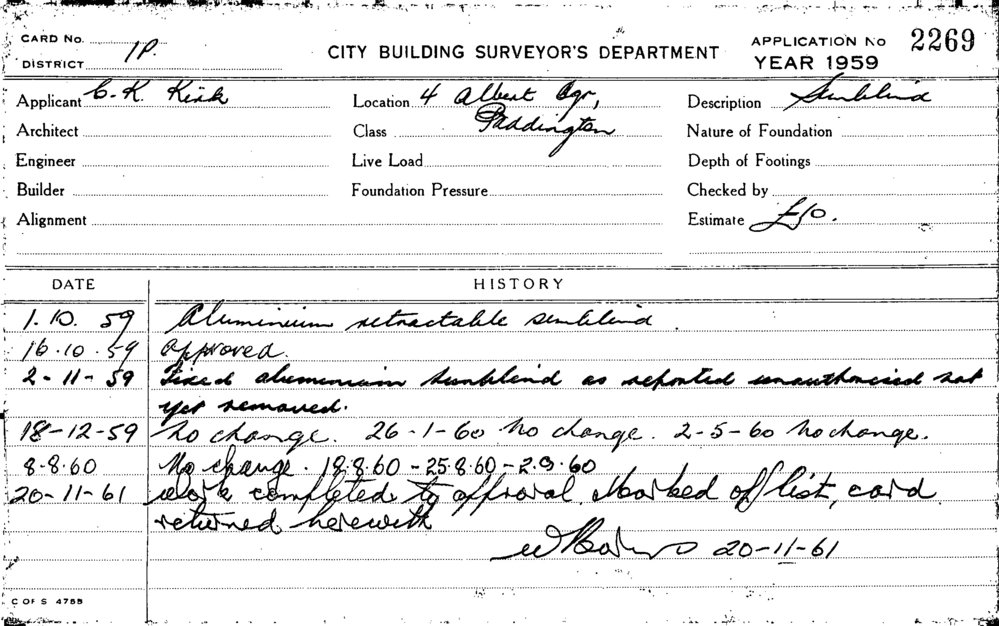 CARD No.
DISTRICT 1P.
CITY BUILDING SURVEYOR'S DEPARTMENT
APPLICATION No 2269
YEAR 1959
Applicant C. K. Kirk
Location 4 Albert Sqr,
Description Sunblind
Architect
Class Paddington
Nature of Foundation
Engineer
Live Load
Depth of Footings
Builder
Foundation Pressure
Checked by
Alignment
Estimate £10.
DATE HISTORY
1.10.59 Aluminium retractable sunblind.
16.10.59 approved.
2-11-59 Fixed aluminium sunblind as reported unauthorised not
yet removed.
18-12-59 No change. 26-1-60 No change. 2-5-60 No change.
8-8.60 No change. 18.8.60 - 25.8.60 - 2.9.60
20-11-61 Work completed to approval. Marked off list, card
returned herewith
20-11-61
C OF S 4755